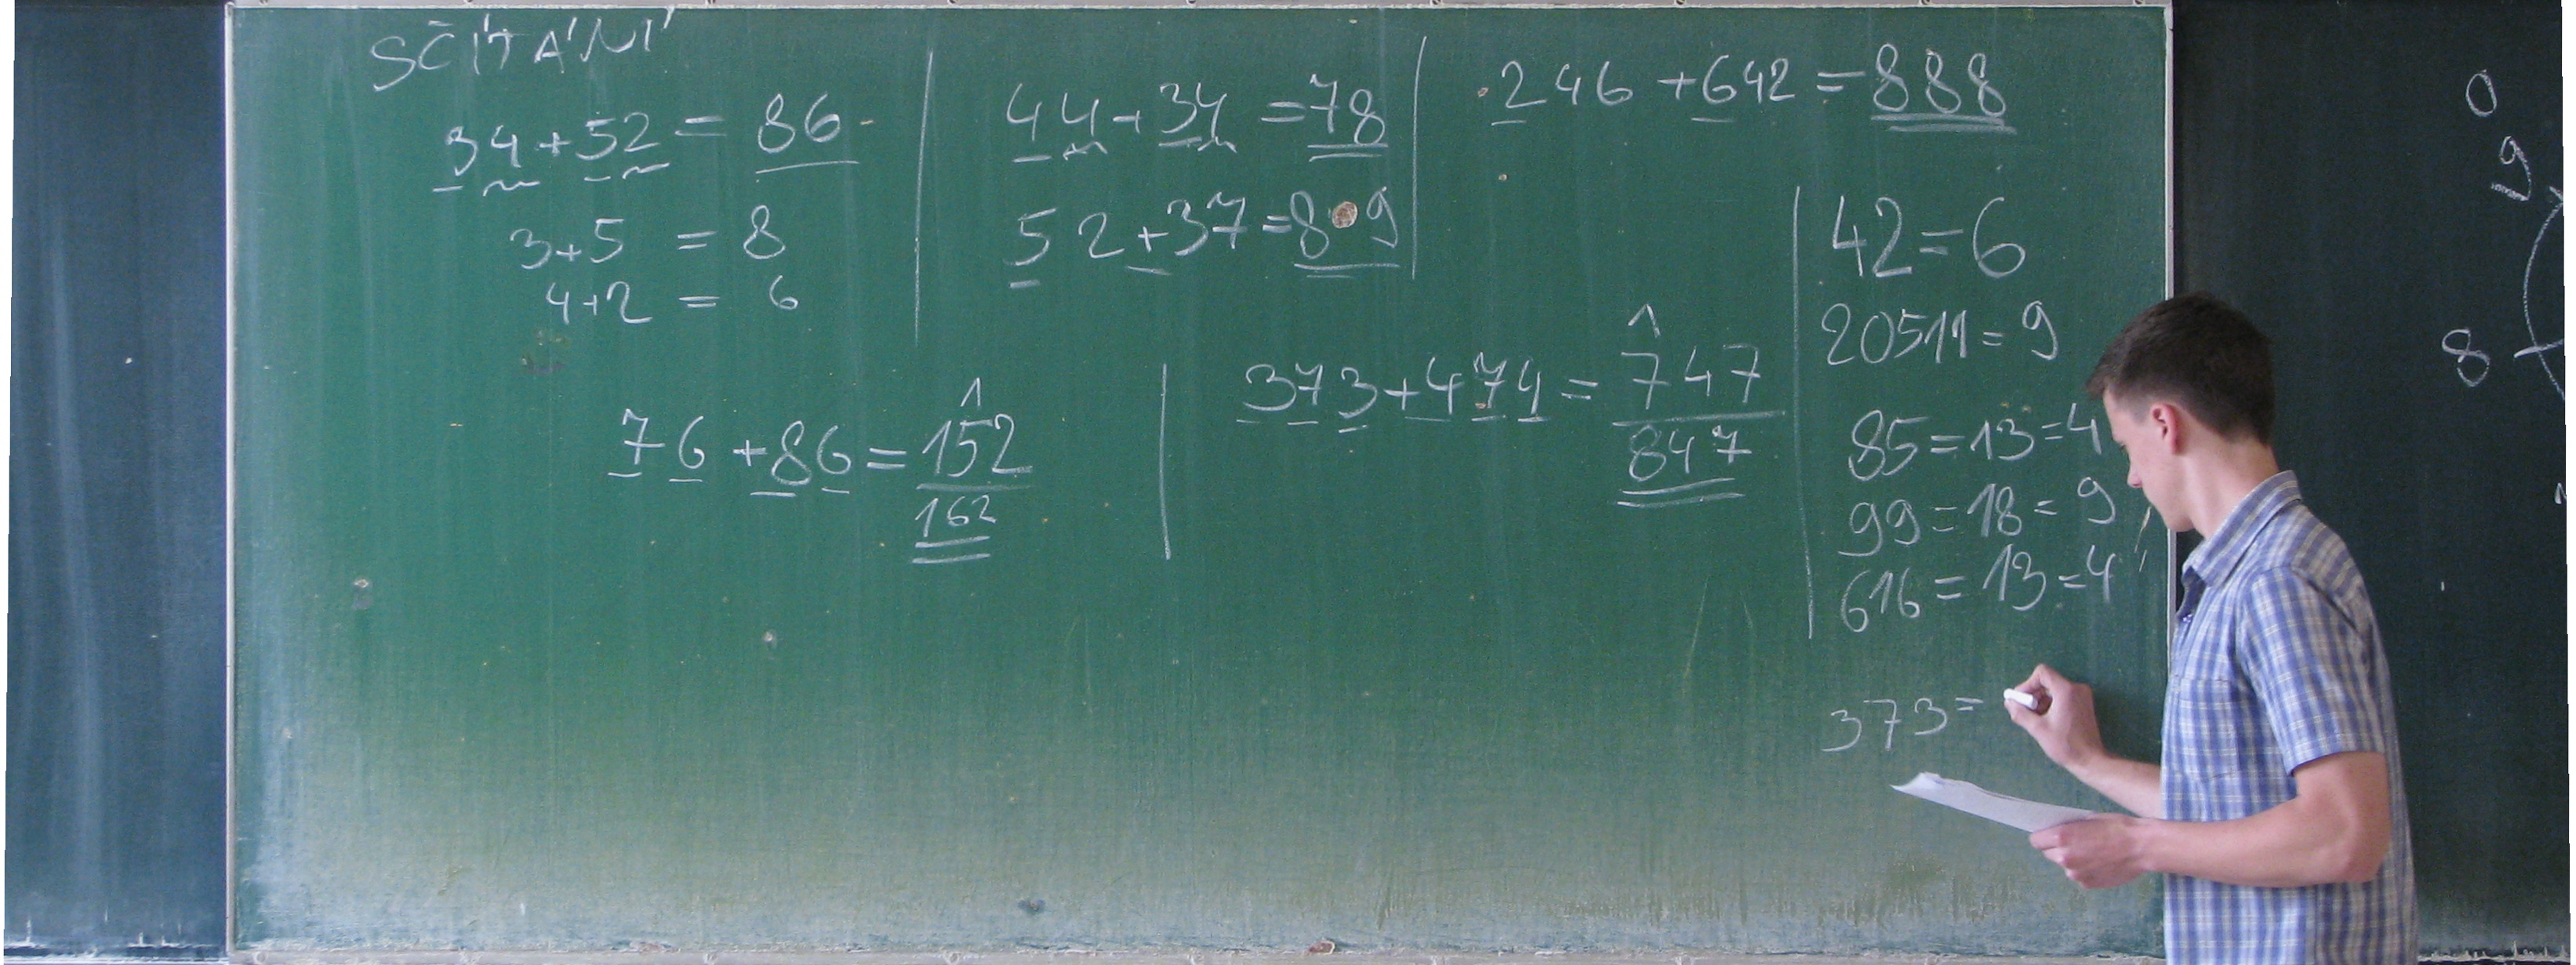 SČÍTÁNÍ
34+52 = 86
3+5 = 8
4+2 = 6
44+34 =78
52+37=89
246 +642 =888
76 +86 = 152
1
162
373+474 = 747
1
847
42=6
20511=9
85=13=4
99=18=9
616=13=4
373=
0
9
8